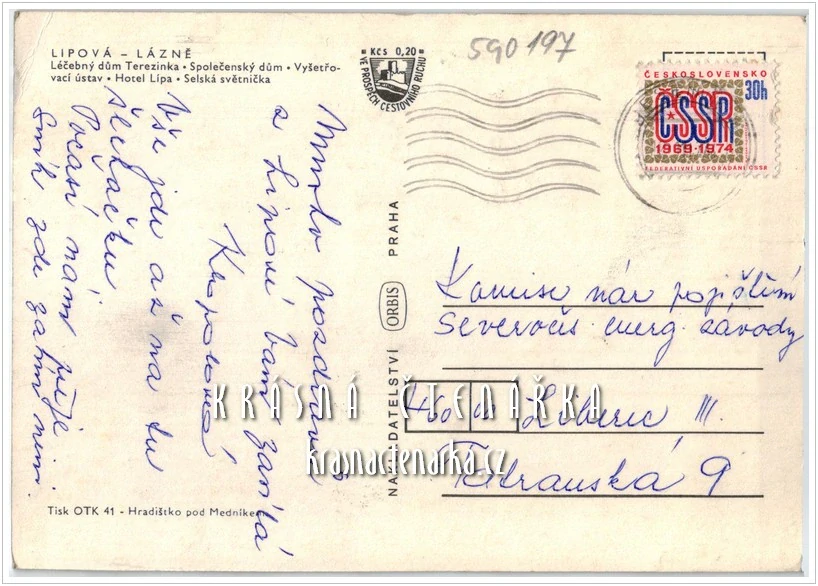 LIPOVÁ – LÁZNĚ
Léčebný dům Terezinka • Společenský dům • Vyšetřo-
vací ústav • Hotel Lípa • Selská světnička
Kčs 0,20
VE PROSPĚCH CESTOVNÍHO RUCHU
590197
ČESKOSLOVENSKO
30h
ČSSR
1969-1974
FEDERATIVNÍ USPOŘÁDÁNÍ ČSSR
Mnoho pozdravů
z Lipové Vám zasílá
Vše jde až na tu
šlehačku.
Počasí nám přeje
Sníh zde zatím není.
NAKLADATELSTVÍ ORBIS PRAHA
Komise nár pojištění
Severočes. energ. závody
460 01 Liberec III.
Tatranská 9
KRÁSNÁ ČTENÁŘKA
krasnactenarka.cz
Tisk OTK 41 - Hradištko pod Medníkem